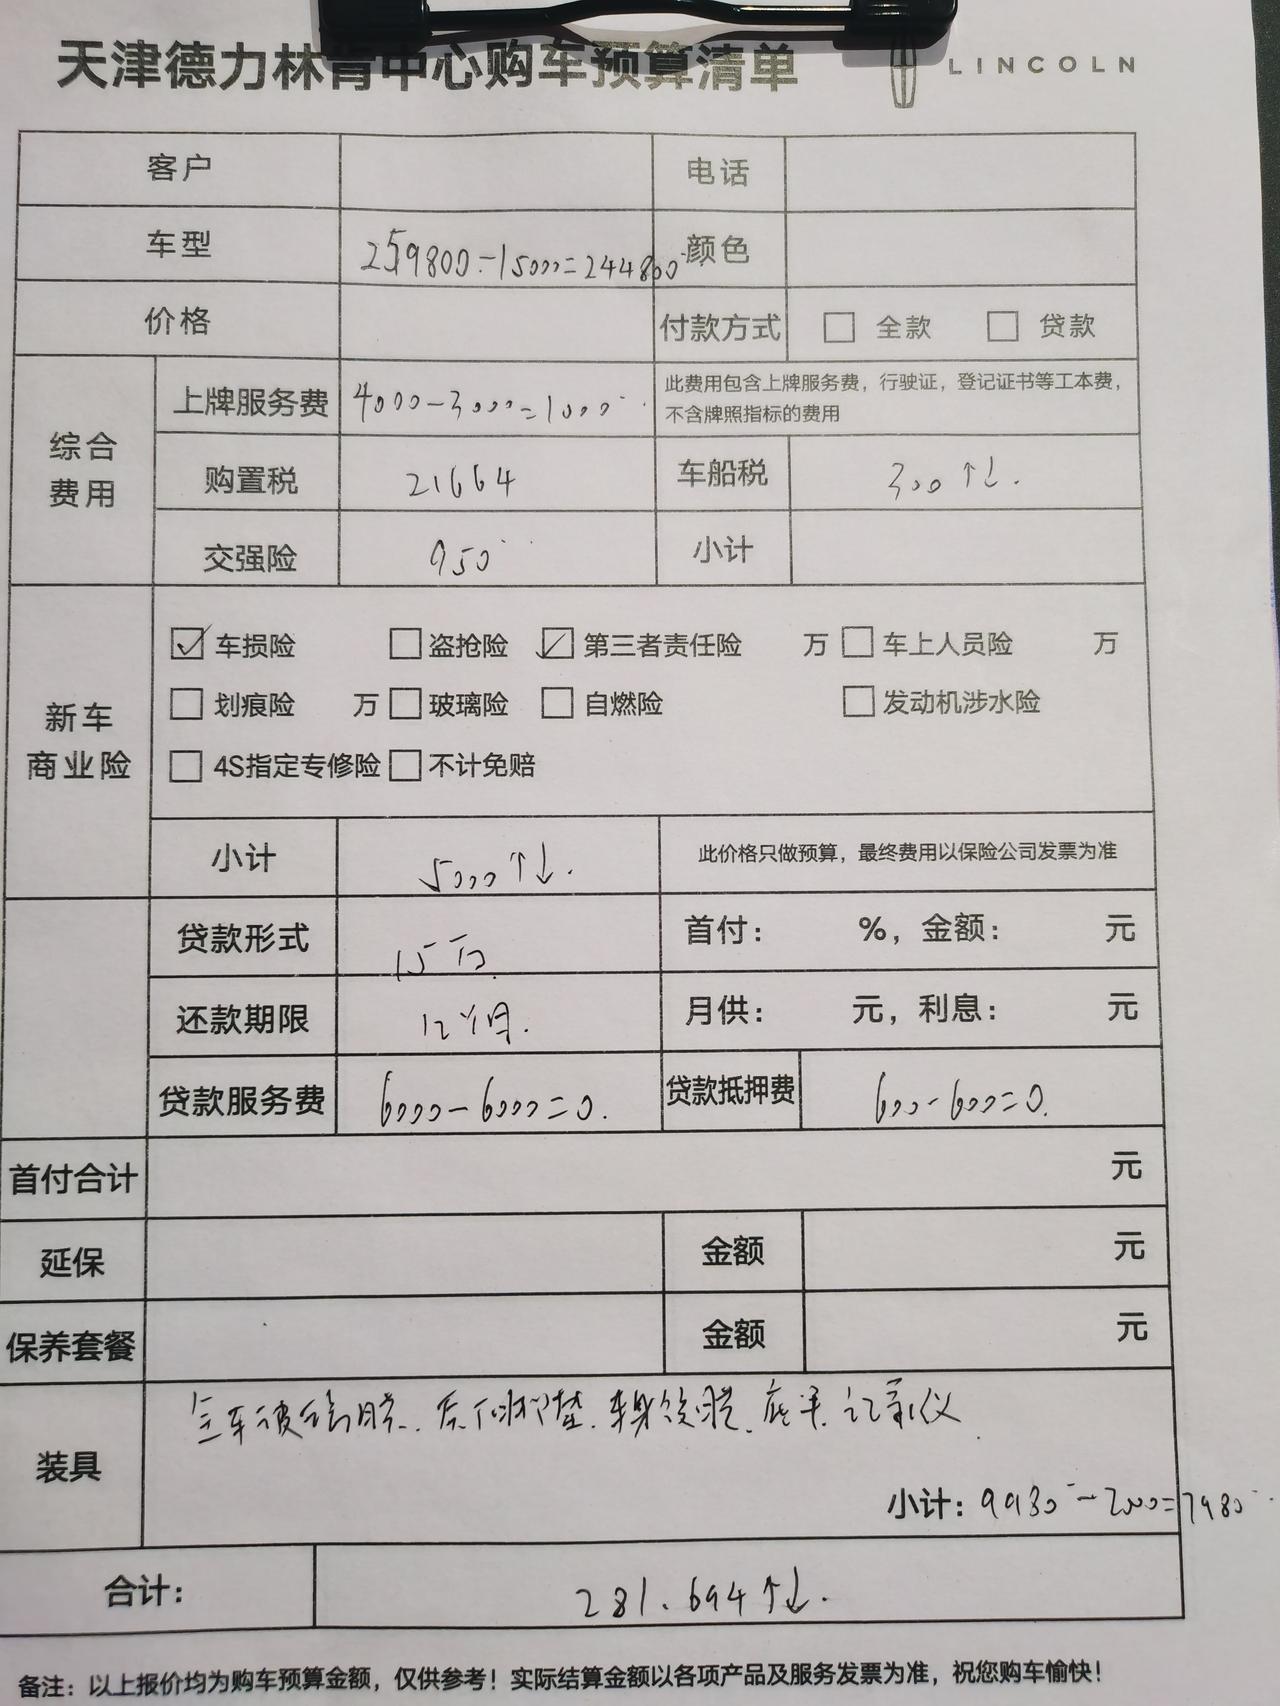 天津德力林肯中心购车预算清单 LINCOLN
客户 电话
车型 259800-15000=244800 颜色
价格 付款方式 □ 全款 □ 贷款
综合费用
上牌服务费 4000-3000=1000 此费用包含上牌服务费，行驶证，登记证书等工本费，
不含牌照指标的费用
购置税 21664 车船税 300↑↓.
交强险 950 小计
新车商业险
☑ 车损险 □ 盗抢险 ☑ 第三者责任险 万 □ 车上人员险 万
□ 划痕险 万 □ 玻璃险 □ 自燃险 □ 发动机涉水险
□ 4S指定专修险 □ 不计免赔
小计 5000↑↓. 此价格只做预算，最终费用以保险公司发票为准
贷款形式 15万 首付： %，金额： 元
还款期限 12个月. 月供： 元，利息： 元
贷款服务费 6000-6000=0. 贷款抵押费 600-600=0.
首付合计 元
延保 金额 元
保养套餐 金额 元
装具 全车玻璃膜. 脚垫. 记录仪
小计：9980-2000=7980
合计： 281.694↑↓.
备注：以上报价均为购车预算金额，仅供参考！实际结算金额以各项产品及服务发票为准，祝您购车愉快！